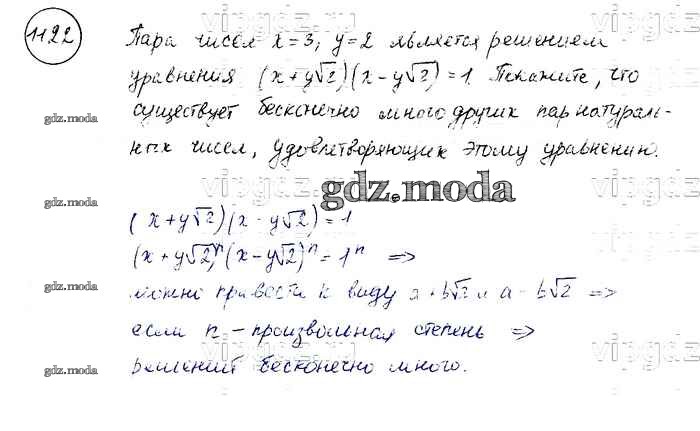 1122
Пара чисел x=3, y=2 является решением
уравнения (x+y√2)(x-y√2)=1. Покажите, что
существует бесконечно много других пар натураль-
ных чисел, удовлетворяющих этому уравнению.
(x+y√2)(x-y√2)=1
(x+y√2)ⁿ(x-y√2)ⁿ=1ⁿ =>
можно привести к виду a+b√2 и a-b√2 =>
если n - произвольная степень =>
решений бесконечно много.
gdz.moda
gdz.moda
gdz.moda
gdz.moda
gdz.moda
vipgdz.ru
vipgdz
vipgdz.ru
vipgdz
vipgdz.ru
vipgdz
vipgdz.ru
vipgdz